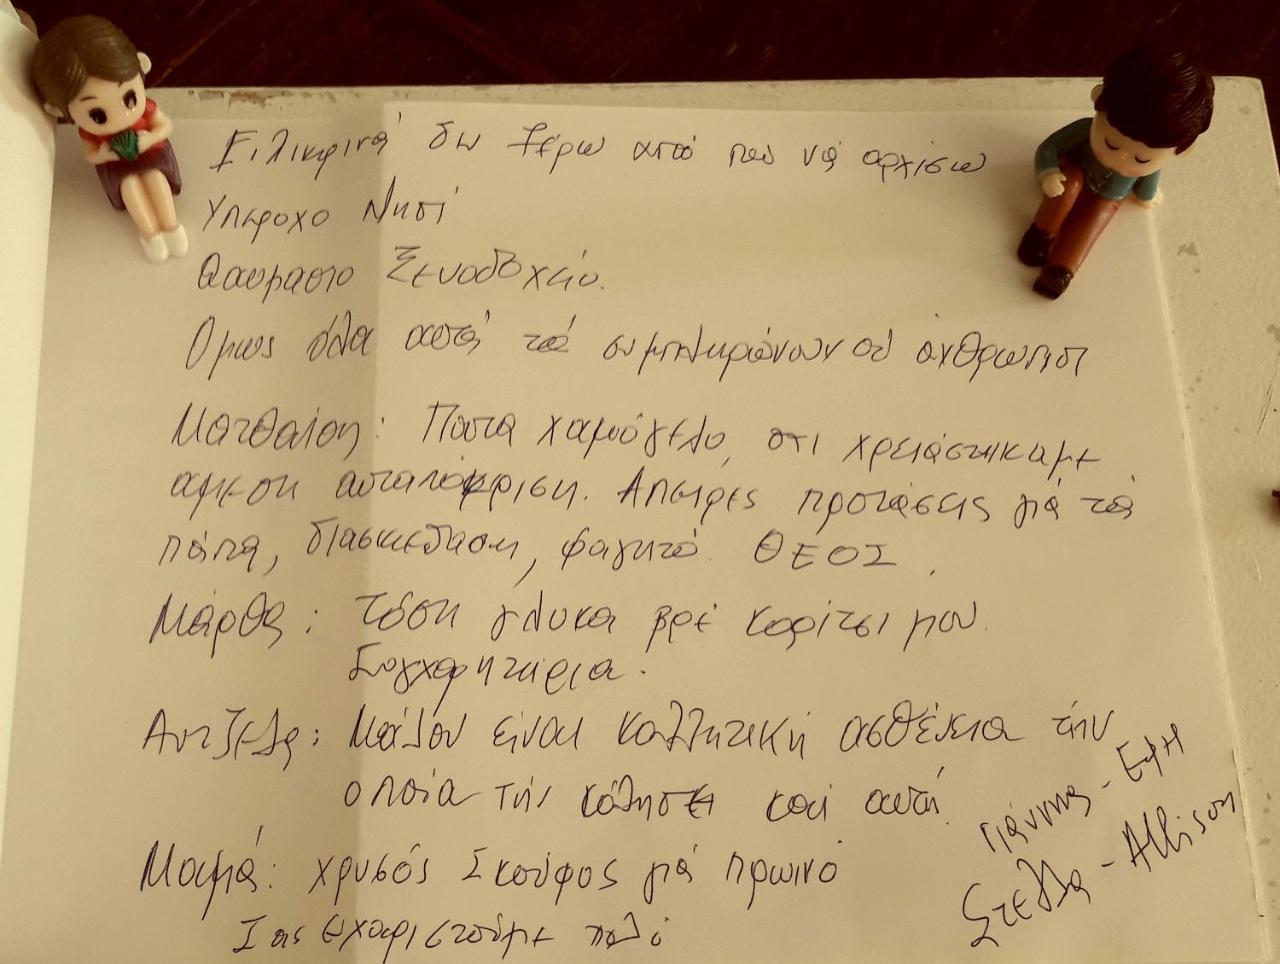 Ειλικρινά δεν ξέρω από που νά αρχίσω
Υπεροχο Νησί
Θαυμαστο Ξενοδοχείο.
Ομως όλα αυτά τά συμπληρώνουν οί άνθρωποι
Ματθαίος: Πάντα χαμόγελο, οτι χρειάστηκαμε
αμεση ανταπόκριση. Απειρες προτάσεις γιά τά
πάντα, διασκεδαση, φαγητό. ΘΕΟΣ.
Μάρθα: τόση γλυκα βρέ κορίτσι μου.
Συγχαρητήρια.
Αντζελα: Μάλον είναι κολλητική ασθένεια τήν
οποία τήν κόλησε καί αυτή.
Μαμά: χρυσός Σκούφος γιά πρωινό
Σας ευχαριστούμε πολύ
Γιάννης - Εφη
Στελλα - Allison